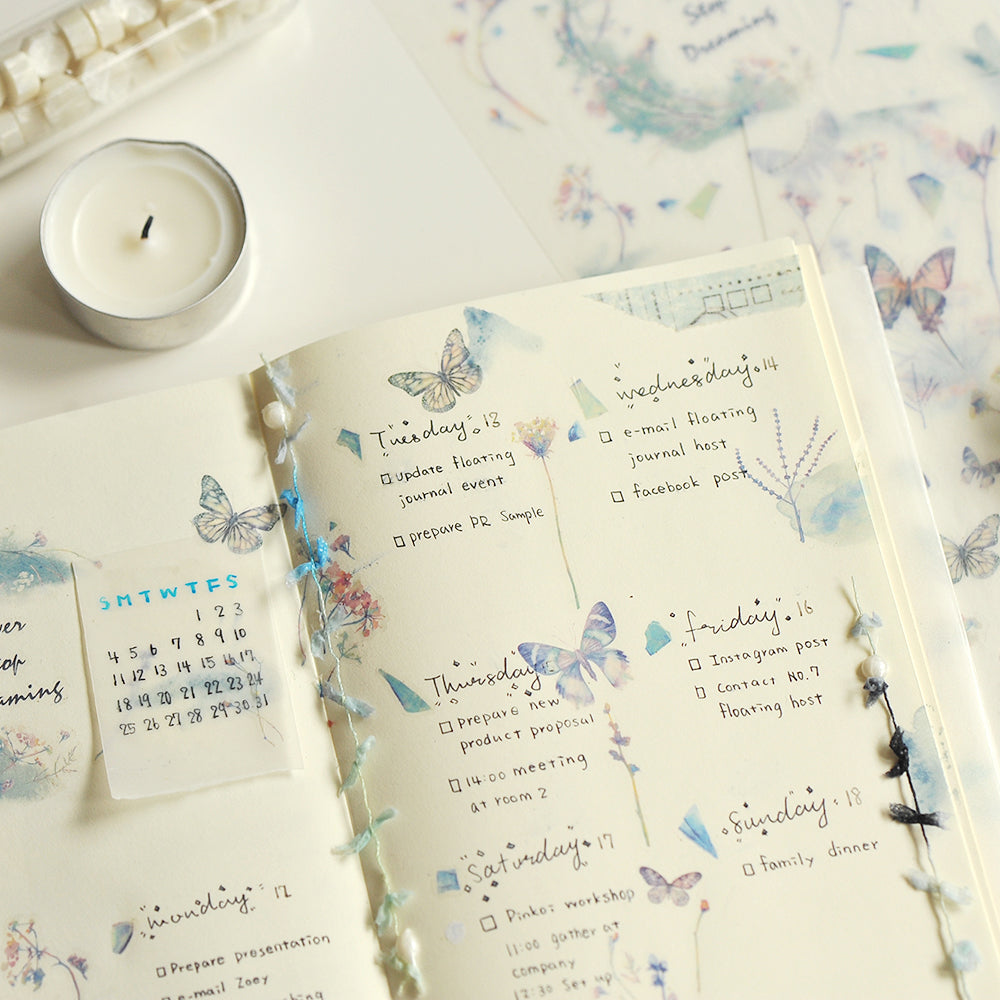 Dreaming
SMTWTFS
1 2 3
4 5 6 7 8 9 10
11 12 13 14 15 16 17
18 19 20 21 22 23 24
25 26 27 28 29 30 31
monday 12
Prepare presentation
e-mail Zoey
Tuesday 13
update floating
journal event
prepare PR Sample
wednesday 14
e-mail floating
journal host
facebook post
Thursday
prepare new
product proposal
14:00 meeting
at room 2
friday 16
Instagram post
contact No.7
floating host
Saturday 17
Pinkoi workshop
11:00 gather at
company
12:30 Set up
Sunday 18
family dinner